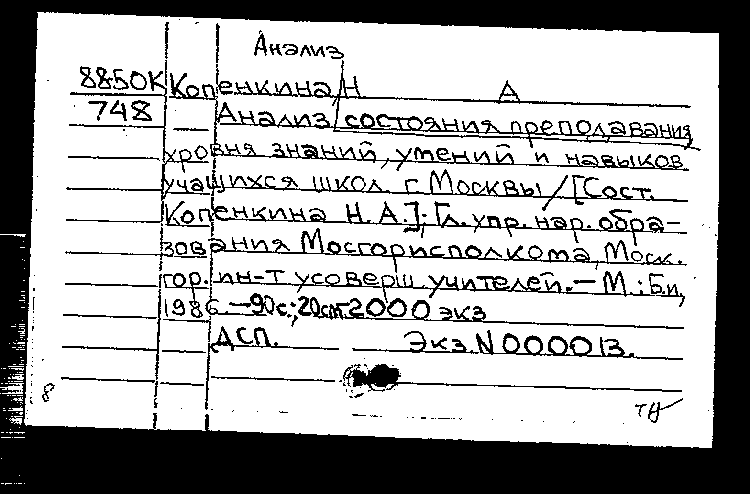 Анализ
8850К Копенкина Н А
748 Анализ состояния преподавания,
уровня знаний, умений и навыков
учащихся школ г Москвы / [Сост.
Копенкина Н. А.]; Гл. упр. нар. обра-
зования Мосгорисполкома, Моск.
гор. ин-т усоверш. учителей. — М.: Б.и,
1986. — 90 с.; 20 см. 2000 экз
ДСП. Экз. N 000013.
8